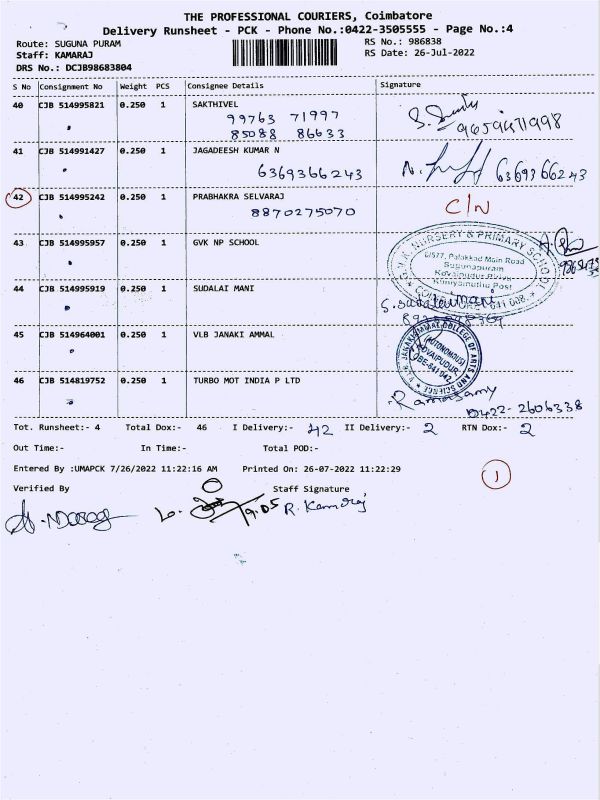 THE PROFESSIONAL COURIERS, Coimbatore
Delivery Runsheet - PCK - Phone No.:0422-3505555 - Page No.:4
Route: SUGUNA PURAM RS No.: 986838
Staff: KAMARAJ RS Date: 26-Jul-2022
DRS No.: DCJB98683804
S No Consignment No Weight PCS Consignee Details Signature
40 CJB 514995821 0.250 1 SAKTHIVEL
99763 71997
85088 86633
41 CJB 514991427 0.250 1 JAGADEESH KUMAR N
6369366243 6369366243
42 CJB 514995242 0.250 1 PRABHAKRA SELVARAJ C/N
8870275070
43 CJB 514995957 0.250 1 GVK NP SCHOOL
G.V.K. NURSERY & PRIMARY SCHOOL
6/577, Palakkad Main Road
Sugunapuram
Kuniyamuthu Post
44 CJB 514995919 0.250 1 SUDALAI MANI
S. Sudalaimani
45 CJB 514964001 0.250 1 VLB JANAKI AMMAL
JANAKIAMMAL COLLEGE OF ARTS AND SCIENCE
(AUTONOMOUS)
KOVAIPUDUR
CBE-641 042
46 CJB 514819752 0.250 1 TURBO MOT INDIA P LTD
Ramasamy
0422-2606338
Tot. Runsheet:- 4 Total Dox:- 46 I Delivery:- 42 II Delivery:- 2 RTN Dox:- 2
Out Time:- In Time:- Total POD:-
Entered By :UMAPCK 7/26/2022 11:22:16 AM Printed On: 26-07-2022 11:22:29
1
Verified By Staff Signature
9.05 R. Kamaraj